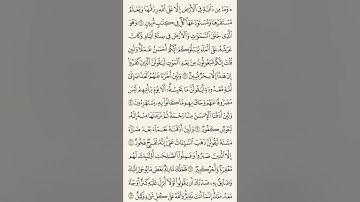 ۞ وَمَا مِن دَآبَّةٖ فِي ٱلۡأَرۡضِ إِلَّا عَلَى ٱللَّهِ رِزۡقُهَا وَيَعۡلَمُ
مُسۡتَقَرَّهَا وَمُسۡتَوۡدَعَهَاۚ كُلّٞ فِي كِتَٰبٖ مُّبِينٖ ٦ وَهُوَ
ٱلَّذِي خَلَقَ ٱلسَّمَٰوَٰتِ وَٱلۡأَرۡضَ فِي سِتَّةِ أَيَّامٖ وَكَانَ
عَرۡشُهُۥ عَلَى ٱلۡمَآءِ لِيَبۡلُوَكُمۡ أَيُّكُمۡ أَحۡسَنُ عَمَلٗاۗ وَلَئِن
قُلۡتَ إِنَّكُم مَّبۡعُوثُونَ مِنۢ بَعۡدِ ٱلۡمَوۡتِ لَيَقُولَنَّ ٱلَّذِينَ كَفَرُوٓاْ
إِنۡ هَٰذَآ إِلَّا سِحۡرٞ مُّبِينٞ ٧ وَلَئِنۡ أَخَّرۡنَا عَنۡهُمُ ٱلۡعَذَابَ إِلَىٰٓ
أُمَّةٖ مَّعۡدُودَةٖ لَّيَقُولُنَّ مَا يَحۡبِسُهُۥٓۗ أَلَا يَوۡمَ يَأۡتِيهِمۡ لَيۡسَ
مَصۡرُوفًا عَنۡهُمۡ وَحَاقَ بِهِم مَّا كَانُواْ بِهِۦ يَسۡتَهۡزِءُونَ ٨
وَلَئِنۡ أَذَقۡنَا ٱلۡإِنسَٰنَ مِنَّا رَحۡمَةٗ ثُمَّ نَزَعۡنَٰهَا مِنۡهُ إِنَّهُۥ
لَيَـُٔوسٞ كَفُورٞ ٩ وَلَئِنۡ أَذَقۡنَٰهُ نَعۡمَآءَ بَعۡدَ ضَرَّآءَ
مَسَّتۡهُ لَيَقُولَنَّ ذَهَبَ ٱلسَّيِّـَٔاتُ عَنِّيٓۚ إِنَّهُۥ لَفَرِحٞ فَخُورٌ ١٠
إِلَّا ٱلَّذِينَ صَبَرُواْ وَعَمِلُواْ ٱلصَّٰلِحَٰتِ أُوْلَٰٓئِكَ لَهُم
مَّغۡفِرَةٞ وَأَجۡرٞ كَبِيرٞ ١١ فَلَعَلَّكَ تَارِكُۢ بَعۡضَ مَا يُوحَىٰٓ إِلَيۡكَ
وَضَآئِقُۢ بِهِۦ صَدۡرُكَ أَن يَقُولُواْ لَوۡلَآ أُنزِلَ عَلَيۡهِ كَنزٌ أَوۡ جَآءَ
مَعَهُۥ مَلَكٌۚ إِنَّمَآ أَنتَ نَذِيرٞۚ وَٱللَّهُ عَلَىٰ كُلِّ شَيۡءٖ وَكِيلٌ ١٢